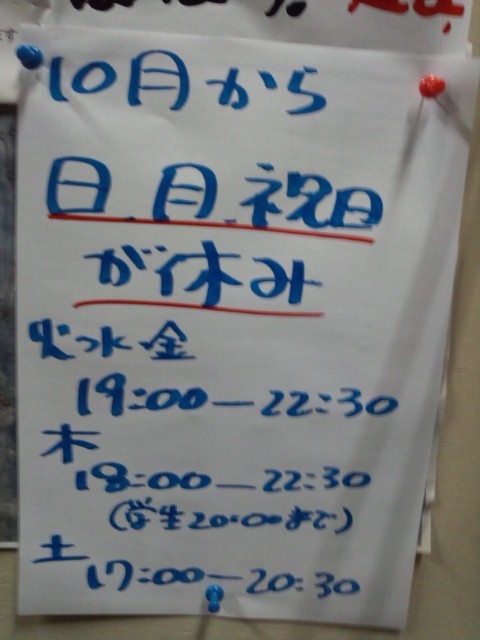 10月から
日、月、祝日
が休み
火、水、金
19:00―22:30
木
18:00―22:30
(学生20:00まで)
土
17:00―20:30